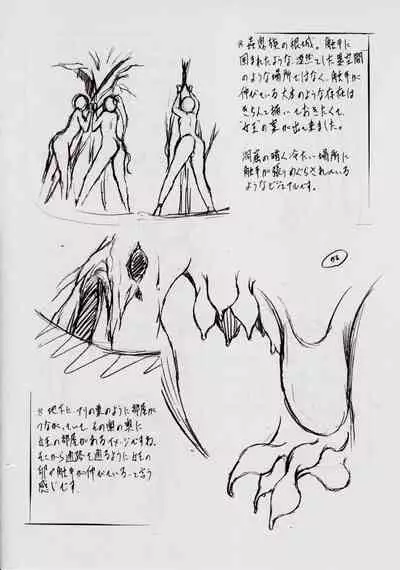 ※ 蟲惑獄の根城。触手に
囲まれたような、漠然とした異空間
のような場所ではなく、触手が
伸びている大本のような存在は
きちんと描いておきたくて、
女王の案が出て来ました。
洞窟の暗く冷たい場所に
触手が張りめぐらされている
ようなビジュアルです。
02
※ 地下に、アリの巣のように部屋が
つながっていて、その奥の奥に
女王の部屋があるイメージですね。
そこから通路を通るように女王の
卵や触手が伸びている、と言う
感じです。